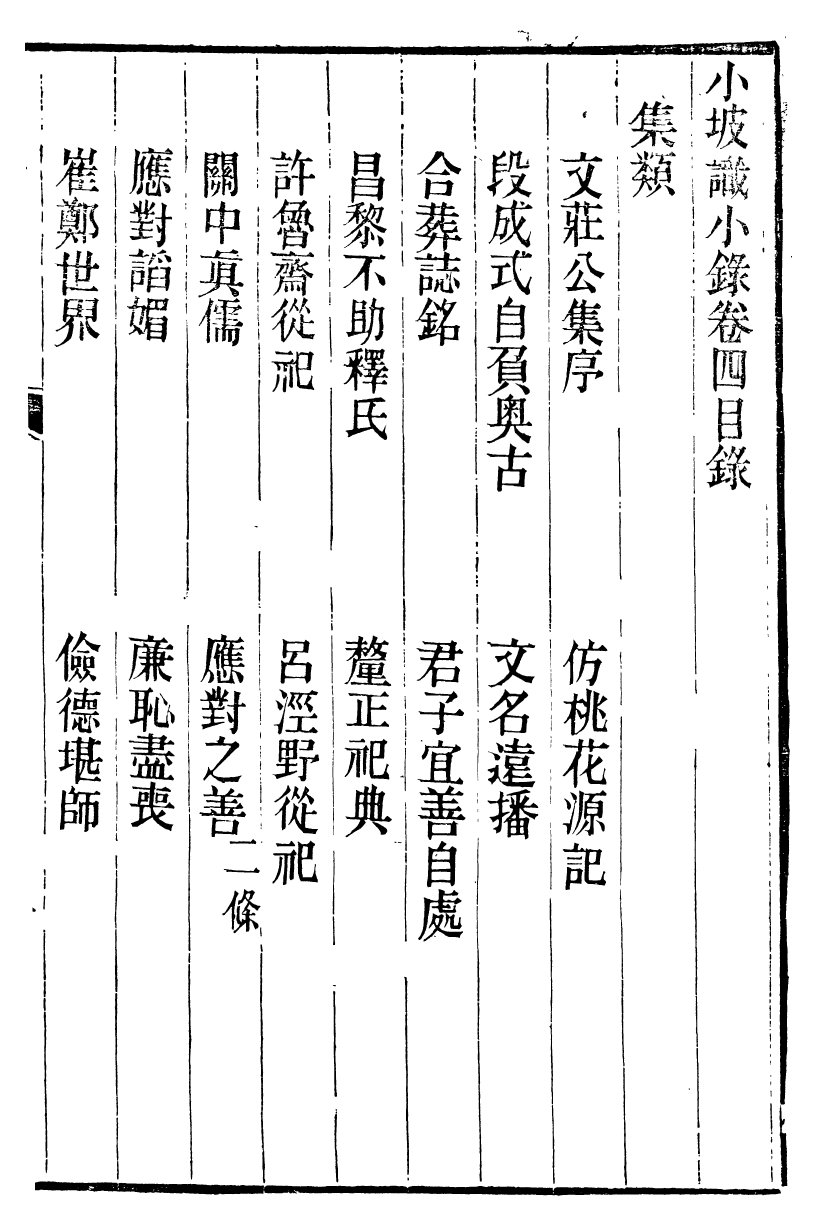 小坡識小錄卷四目錄
集類
文莊公集序　仿桃花源記
段成式自負奥古　文名遠播
合葬誌銘　君子宜善自處
昌黎不助釋氏　釐正祀典
許魯齋從祀　呂涇野從祀
關中真儒　應對之善二條
應對謟媚　廉恥盡喪
崔鄭世界　儉德堪師